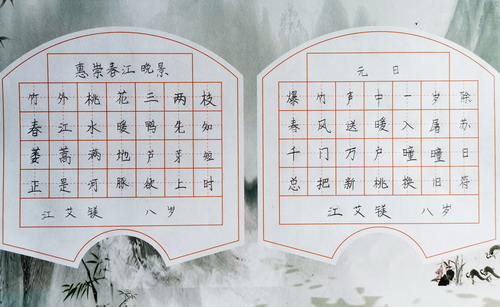 惠崇春江晚景
竹外桃花三两枝
春江水暖鸭先知
蒌蒿满地芦芽短
正是河豚欲上时
江艾镁 八岁
元日
爆竹声中一岁除
春风送暖入屠苏
千门万户曈曈日
总把新桃换旧符
江艾镁 八岁